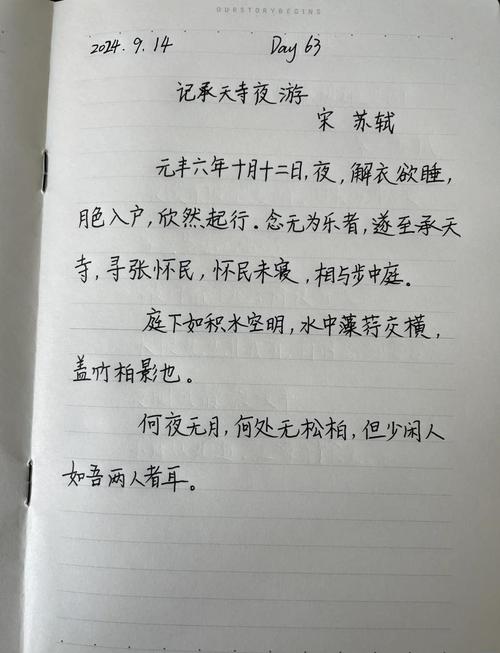 OURSTORYBEGINS
2024.9.14 Day 63
记承天寺夜游
宋 苏轼
元丰六年十月十二日,夜,解衣欲睡,
月色入户,欣然起行。念无为乐者,遂至承天
寺,寻张怀民,怀民未寝,相与步中庭。
庭下如积水空明,水中藻荇交横,
盖竹柏影也。
何夜无月,何处无松柏,但少闲人
如吾两人者耳。